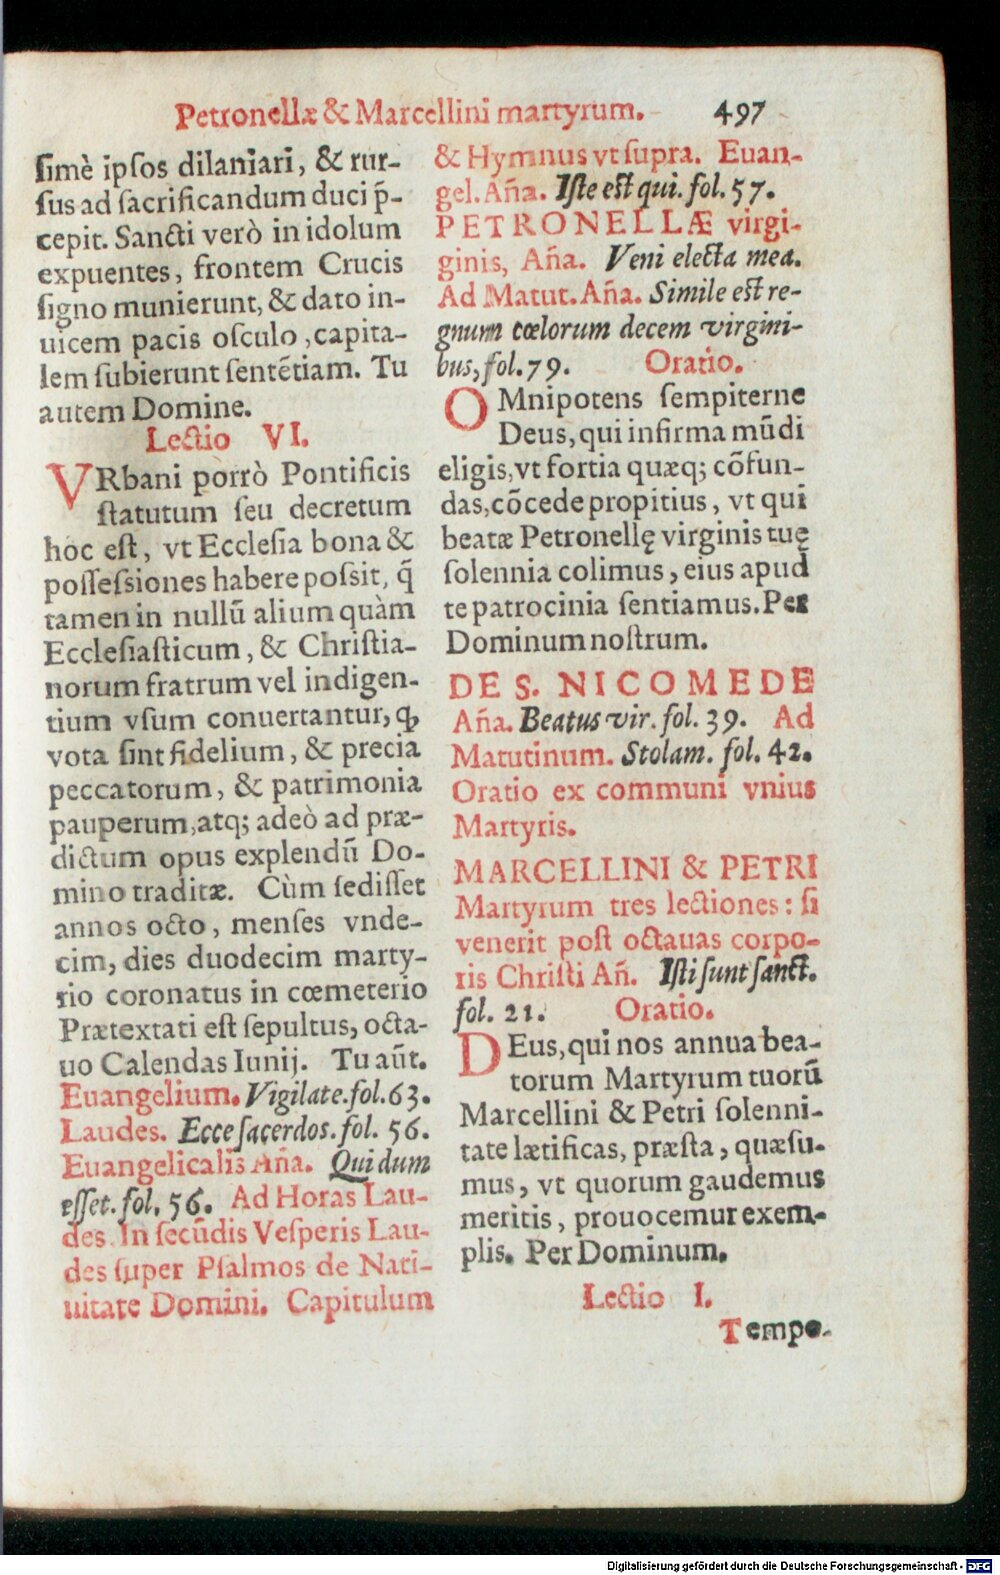 Petronellæ & Marcellini martyrum. 497
ſimè ipſos dilaniari, & rur-
ſus ad ſacrificandum duci p̄-
cepit. Sancti verò in idolum
expuentes, frontem Crucis
ſigno munierunt, & dato in-
uicem pacis oſculo, capita-
lem ſubierunt ſentētiam. Tu
autem Domine.
Lectio VI.
VRbani porrò Pontificis
ſtatutum ſeu decretum
hoc eſt, vt Eccleſia bona &
poſſeſsiones habere poſsit, q̃
tamen in nullũ alium quàm
Eccleſiaſticum, & Chriſtia-
norum fratrum vel indigen-
tium vſum conuertantur, ꝙ
vota ſint fidelium, & precia
peccatorum, & patrimonia
pauperum, atq; adeò ad præ-
dictum opus explendũ Do-
mino traditæ. Cùm ſediſſet
annos octo, menſes vnde-
cim, dies duodecim marty-
rio coronatus in cœmeterio
Prætextati eſt ſepultus, octa-
uo Calendas Iunij. Tu aũt.
Euangelium. Vigilate. fol. 63.
Laudes. Ecce ſacerdos. fol. 56.
Euangelicalis Aña. Qui dum
eſſet. fol. 56. Ad Horas Lau-
des. In ſecũdis Veſperis Lau-
des ſuper Pſalmos de Nati-
uitate Domini. Capitulum
& Hymnus vt ſupra. Euan-
gel. Aña. Iſte eſt qui. fol. 57.
PETRONELLÆ virgi-
ginis, Aña. Veni electa mea.
Ad Matut. Aña. Simile eſt re-
gnum cœlorum decem virgini-
bus, fol. 79. Oratio.
OMnipotens ſempiterne
Deus, qui infirma mũdi
eligis, vt fortia quæq; cõfun-
das, cõcede propitius, vt qui
beatæ Petronellę virginis tuę
ſolennia colimus, eius apud
te patrocinia ſentiamus. Per
Dominum noſtrum.
DE S. NICOMEDE
Aña. Beatus vir. fol. 39. Ad
Matutinum. Stolam. fol. 42.
Oratio ex communi vnius
Martyris.
MARCELLINI & PETRI
Martyrum tres lectiones: ſi
venerit poſt octauas corpo-
ris Chriſti Añ. Iſti ſunt ſanct.
fol. 21. Oratio.
DEus, qui nos annua bea-
torum Martyrum tuorũ
Marcellini & Petri ſolenni-
tate lætificas, præſta, quæſu-
mus, vt quorum gaudemus
meritis, prouocemur exem-
plis. Per Dominum.
Lectio I.
Tempo-
Digitalisierung gefördert durch die Deutsche Forschungsgemeinschaft - DFG